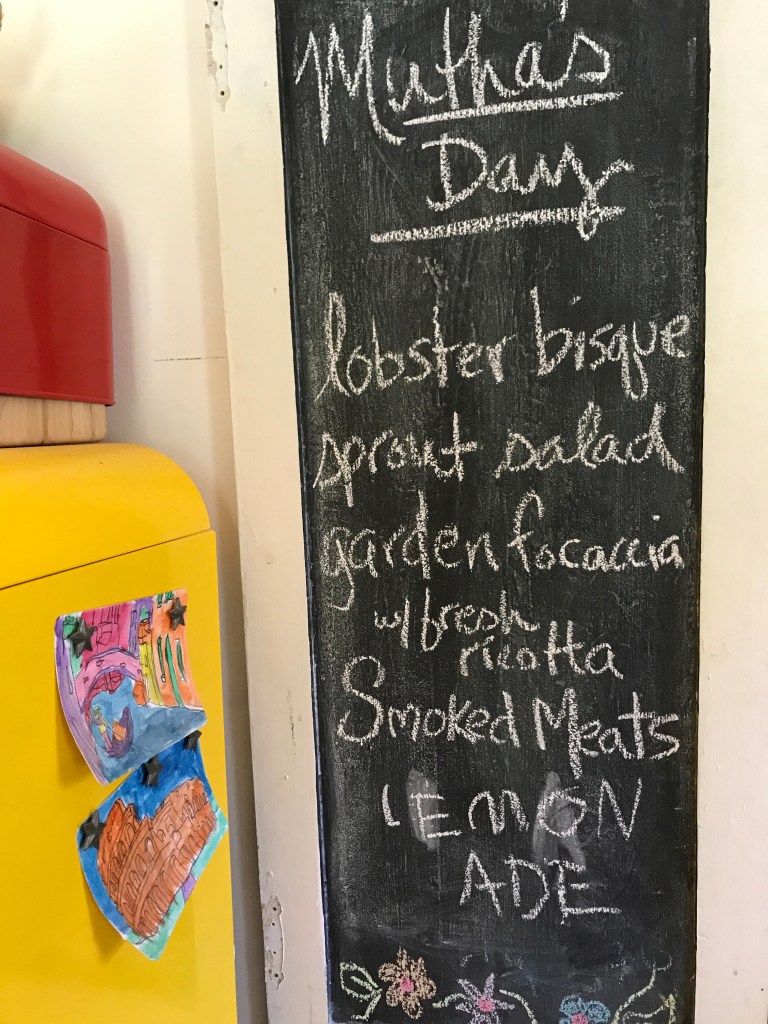 Mutha's
Day
lobster bisque
sprout salad
garden focaccia
w/ fresh
ricotta
Smoked Meats
LEMON
ADE